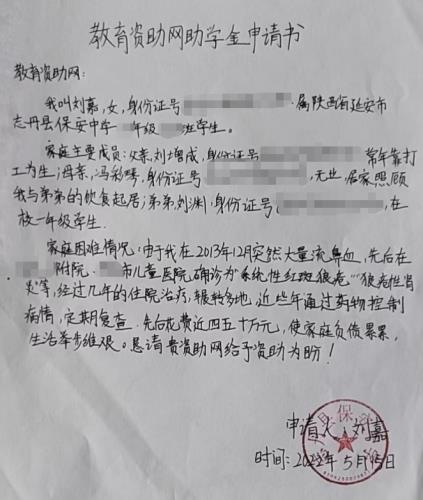 教育资助网助学金申请书
教育资助网：
我叫刘嘉，女，身份证号 属陕西省延安市
志丹县保安中学 年级 班学生。
家庭主要成员：父亲，刘增成，身份证号 常年靠打
工为生；母亲，冯彩琴，身份证号 ，无业，居家照顾
我与弟弟的饮食起居；弟弟，刘渊，身份证号 ，在
校一年级学生.
家庭困难情况：由于我在2013年12月突然大量流鼻血，先后在
附院、 市儿童医院确诊为“系统性红斑狼疮”“狼疮性肾
炎”等，经过几年的住院治疗，辗转多地，近些年通过药物控制
病情，定期复查.先后花费近四五十万元，使家庭负债累累，
生活举步维艰。恳请贵资助网给予资助为盼！
申请人：刘嘉
时间：2022年5月15日